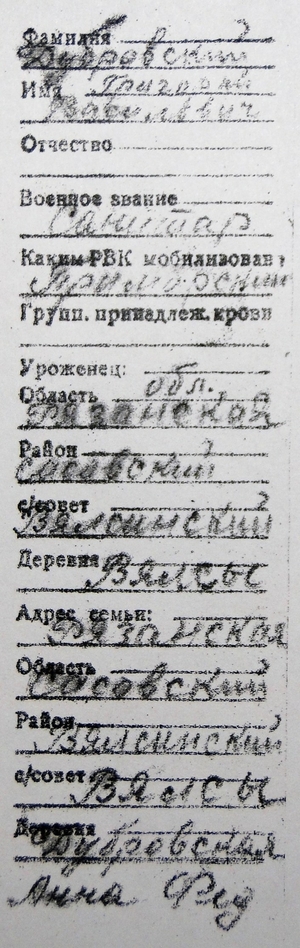 Фамилия
Дубровский
Имя Григорий
Васильевич
Отчество
Военное звание
Санитар
Каким РВК мобилизован
Приморский
Групп. принадлеж. крови
Уроженец:
Область обл.
Рязанская
Район
Сасовский
с/совет
Вялсинский
Деревня Вялсы
Адрес семьи:
Рязанская
Область
Сасовский
Район
Вялсинский
с/совет
Вялсы
Деревня
Дубровская
Анна Фед